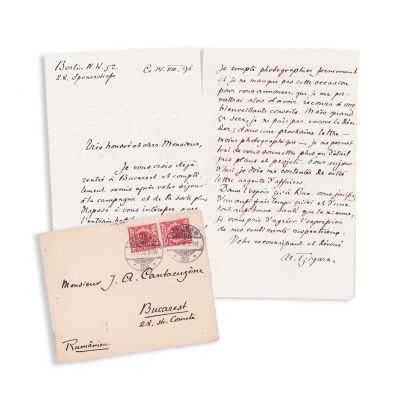 Berlin N.W. 52
28, Spenerstraße
Ce 14. VIII. 96
Très honoré et cher Monsieur,
Je vous crois déjà
rentré à Bucarest et complè-
tement remis après votre séjour
à la campagne et de la sorte plus
disposé à vous intéresser
Je compte photographier
et je ne manque pas cette occasion
pour vous annoncer, que je me per-
mettrai alors d'avoir recours à vos
bienveillants conseils. Mais quand
ça sera, je ne puis pas encore le
dans une prochaine lettre
moins photographique — je me permet
trai de vous soumettre plus en détail
mes plans et projets. Pour aujour-
d'hui je dois me contenter de cette
lettre urgente d'affaires.
Dans l'espoir qu'à vous jouissez
d'un aussi beau temps qu'ici et d'une
tout aussi bonne santé que la mienne,
je vous prie d'agréer l'expression
de mes sentiments respectueux.
Votre reconnaissant et dévoué
Al. Tzigara.
Monsieur J. A. Cantacuzène
Bucarest
28, str. Cometa
Rumänien